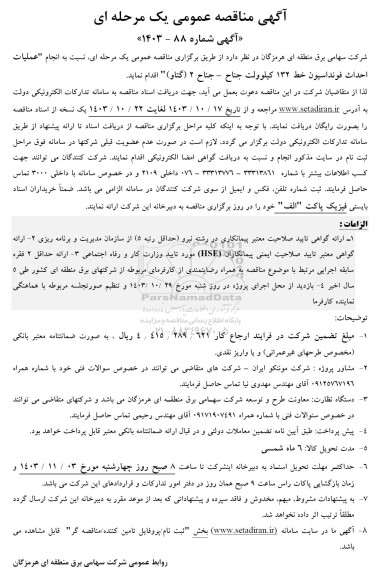 آگهی مناقصه عمومی یک مرحله ای
«آگهی شماره ۸۸ - ۱۴۰۳»
شرکت سهامی برق منطقه ای هرمزگان در نظر دارد از طریق برگزاری مناقصه عمومی یک مرحله ای، نسبت به انجام "عملیات
احداث فونداسیون خط ۱۳۲ کیلوولت جناح – جناح ۲ (گتاو)" اقدام نماید.
لذا از متقاضیان شرکت در این مناقصه دعوت بعمل می آید. جهت دریافت اسناد مناقصه به سامانه تدارکات الکترونیکی دولت
به آدرس www.setadiran.ir مراجعه و از تاریخ ۱۷ / ۱۰ / ۱۴۰۳ لغایت ۲۲ / ۱۰ / ۱۴۰۳ یک نسخه از اسناد مناقصه
را بصورت رایگان دریافت نمایند. با توجه به اینکه کلیه مراحل برگزاری مناقصه از دریافت اسناد تا ارائه پیشنهاد از طریق
سامانه تدارکات الکترونیکی دولت برگزار می گردد، لازم است در صورت عدم عضویت قبلی شرکتها در سامانه فوق مراحل
ثبت نام در سایت مذکور انجام و نسبت به دریافت گواهی امضا الکترونیکی اقدام نمایند. شرکت کنندگان می توانند جهت
کسب اطلاعات بیشتر با شماره ۳۳۳۱۳۸۶۱ - ۳۳۳۱۳۷۷۶ - ۰۷۶ داخلی ۲۱۰۹ و در خصوص سامانه با داخلی ۳۰۰۰ تماس
حاصل فرمایند. ثبت شماره تلفن، فکس و ایمیل از سوی شرکت کنندگان در سامانه الزامی می باشد. ضمناً خریداران اسناد
بایستی فیزیک پاکت "الف" خود را در روز برگزاری مناقصه به دبیرخانه این شرکت ارائه نمایند.
الزامات :
۱- ارائه گواهی تایید صلاحیت معتبر پیمانکاری در رشته نیرو (حداقل رتبه ۵) از سازمان مدیریت و برنامه ریزی ۲- ارائه
گواهی معتبر تایید صلاحیت ایمنی پیمانکاران (HSE) مورد تایید وزارت کار و رفاه اجتماعی ۳- ارائه حداقل ۲ فقره
سابقه اجرایی مرتبط با موضوع مناقصه به همراه رضایتمندی از کارفرمای مربوطه از شرکتهای برق منطقه ای کشور طی ۵
سال اخیر ۴- بازدید از محل اجرای پروژه در روز شنبه مورخ ۲۹ / ۱۰ / ۱۴۰۳ و تنظیم صورتجلسه مربوطه با هماهنگی
نماینده کارفرما
توضیحات:
۱- مبلغ تضمین شرکت در فرایند ارجاع کار ۶۲۱ , ۲۸۹ , ۴۱۵ , ۴ ریال ، به صورت ضمانتنامه معتبر بانکی
(مخصوص طرحهای غیرعمرانی) و یا واریز نقدی.
۲- مشاور پروژه : شرکت مونتکو ایران – شرکت های متقاضی می توانند در خصوص سوالات فنی خود با شماره همراه
۰۹۱۲۵۷۶۷۱۹۶ آقای مهندس مهدوی نیا تماس حاصل فرمایند.
۳- دستگاه نظارت: معاونت طرح و توسعه شرکت سهامی برق منطقه ای هرمزگان می باشد و شرکتهای متقاضی می توانند
در خصوص سئوالات فنی با شماره همراه ۰۹۱۷۱۹۰۷۴۹۱ آقای مهندس رحیمی تماس حاصل فرمایند.
۴- پیش پرداخت: طبق آیین نامه تضمین معاملات دولتی و در قبال ارائه ضمانتنامه بانکی معتبر قابل پرداخت خواهد بود.
۵- مدت تحویل کالا: ۶ ماه شمسی
۶- حداکثر مهلت تحویل اسناد به دبیرخانه اینشرکت تا ساعت ۸ صبح روز چهارشنبه مورخ ۰۳ / ۱۱ / ۱۴۰۳ و
زمان بازگشایی پاکات راس ساعت ۹ صبح همان روز در دفتر امور تدارکات و قراردادهای این شرکت می باشد.
۷- به پیشنهادات مشروط، مبهم، مخدوش و فاقد سپرده و پیشنهاداتی که بعد از موعد مقرر به دبیرخانه این شرکت ارسال گردد
مطلقاً ترتیب اثر داده نخواهد شد.
۸- آگهی ما در سایت سامانه (www.setadiran.ir) بخش "ثبت نام/پروفایل تامین کننده/مناقصه گر" قابل مشاهده می
باشد.
روابط عمومی شرکت سهامی برق منطقه ای هرمزگان